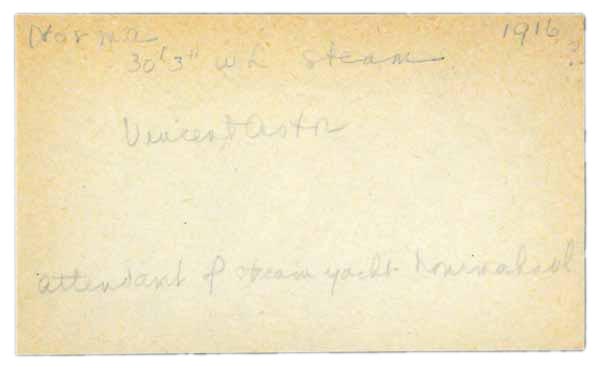 Norma 1916 ?
30'3" WL steam
Vincent Astor
attendant of steam yacht Nourmahal